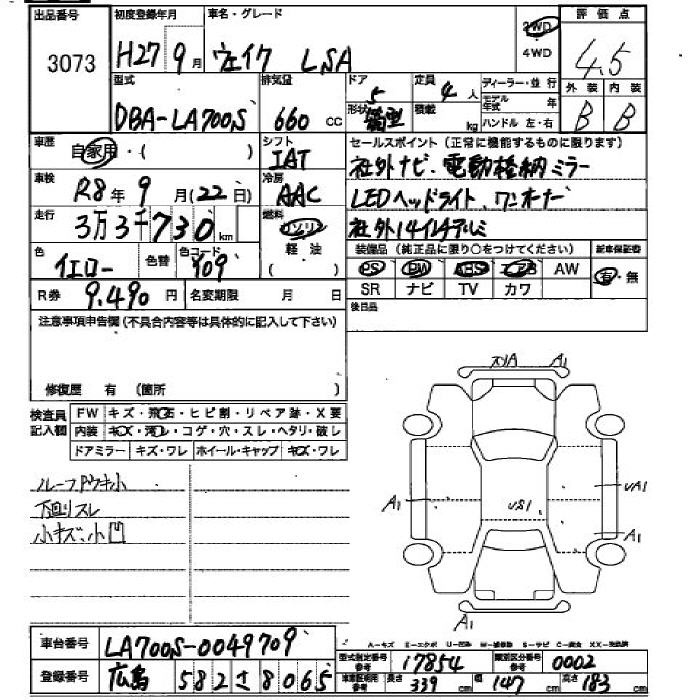 出品番号 初度登録年月 車名・グレード 評価点
3073 H27 9月 ウェイク LSA 2WD 4WD 4.5
型式 排気量 ドア 定員 ディーラー・並行 外装 内装
DBA-LA700S 660 cc 5 4人 モデル年式 年 B B
形状 箱型 積載 kg ハンドル 左・右
車歴 自家用・( ) シフト IAT セールスポイント(正常に機能するものに限ります)
社外ナビ・電動格納ミラー
車検 R8年9月(22日) 冷房 AAC LEDヘッドライト、ワンオーナー
走行 3万3千730km 燃料 ガソリン 軽油 ( ) 社外14インチアルミ
色 イエロー 色替 色コード Y09 装備品(純正品に限り○をつけてください) 新車保証書
PS PW ABS エアB AW 有・無
SR ナビ TV カワ
R券 9,490円 名変期限 月 日 後日品
注意事項申告欄(不具合内容等は具体的に記入して下さい)
修復歴 有 (箇所 )
検査員記入欄 FW キズ・飛石・ヒビ割・リペア跡・X要
内装 キズ・汚レ・コゲ・穴・スレ・ヘタリ・破レ
ドアミラー キズ・ワレ ホイール・キャップ キズ・ワレ
A1
ルーフドウキ小
下回リスレ
小キズ、小凹
A1 US1 UA1
A1
A1
車台番号 LA700S-0049709
A-キズ E-エクボ U-凹み W-補修跡 S-サビ C-腐食 XX-交換済
型式指定番号 参考 17854 類別区分番号 参考 0002
登録番号 広島 582 さ 8065 車庫証明用 参考 長さ 339cm 幅 147cm 高さ 183cm